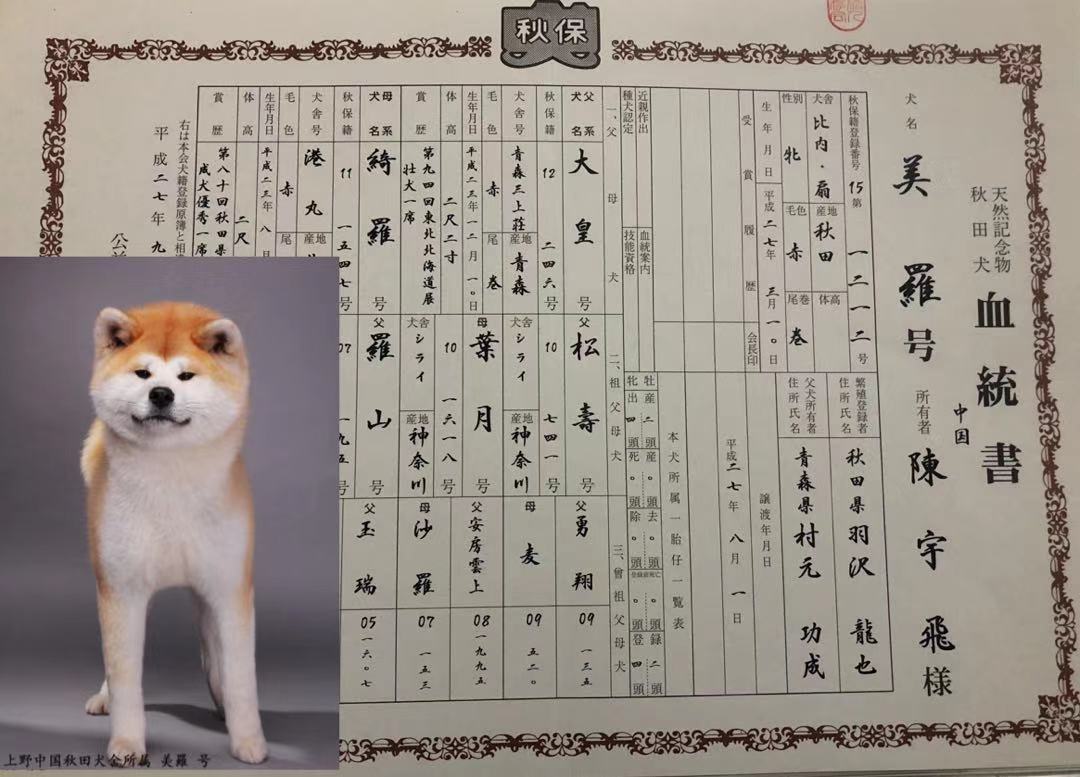 秋保
天然記念物
秋田犬
血統書
犬名 美羅号
中国
所有者 陳宇飛様
秋保籍登録番号 15第 一二一一二号
犬舎 比内・扇
産地 秋田
体高
性別 牝
毛色 赤
尾 巻
生年月日 平成二七年三月一〇日
受賞履歴
会長印
繁殖登録者住所氏名 秋田県羽沢 龍也
父犬所有者住所氏名 青森県村元 功成
譲渡年月日
平成二七年八月一日
本犬所属一胎仔一覧表
牡 産 二頭 死産 〇頭 去 〇頭 登録前死亡 〇頭 登録 二頭
牝 出 四頭 除 〇頭 登 四頭
近親作出
種犬認定
血統案内
技能資格
一、父母犬
二、祖父母犬
三、曾祖父母犬
父系犬名 大皇号
秋保籍 12 二四六号
犬舎号 青森三上荘
産地 青森
毛色 赤
尾 巻
生年月日 平成二三年一二月一〇日
体高 二尺二寸
賞歴 第九四回東北北海道展
壮犬一席
母系犬名 綺羅号
秋保籍 11 一五四七号
犬舎号 港丸
産地
毛色 赤
尾
生年月日 平成二三年八月
体高 二尺
賞歴 第八十回秋田県
成犬優秀一席
父 松壽号
10 七四一号
犬舎 シライ
産地 神奈川
母 葉月号
10 一六一八号
犬舎 シライ
産地 神奈川
父 羅山号
07 一九五号
父 勇翔
09 一三五
母 麦
09 五二〇
父 安房雲上
08 一九九五
母 沙羅
07 一五三
父 玉瑞
05 一六〇七
右は本会犬籍登録原簿と相
平成二七年九
上野中国秋田犬舍所属 美羅 号